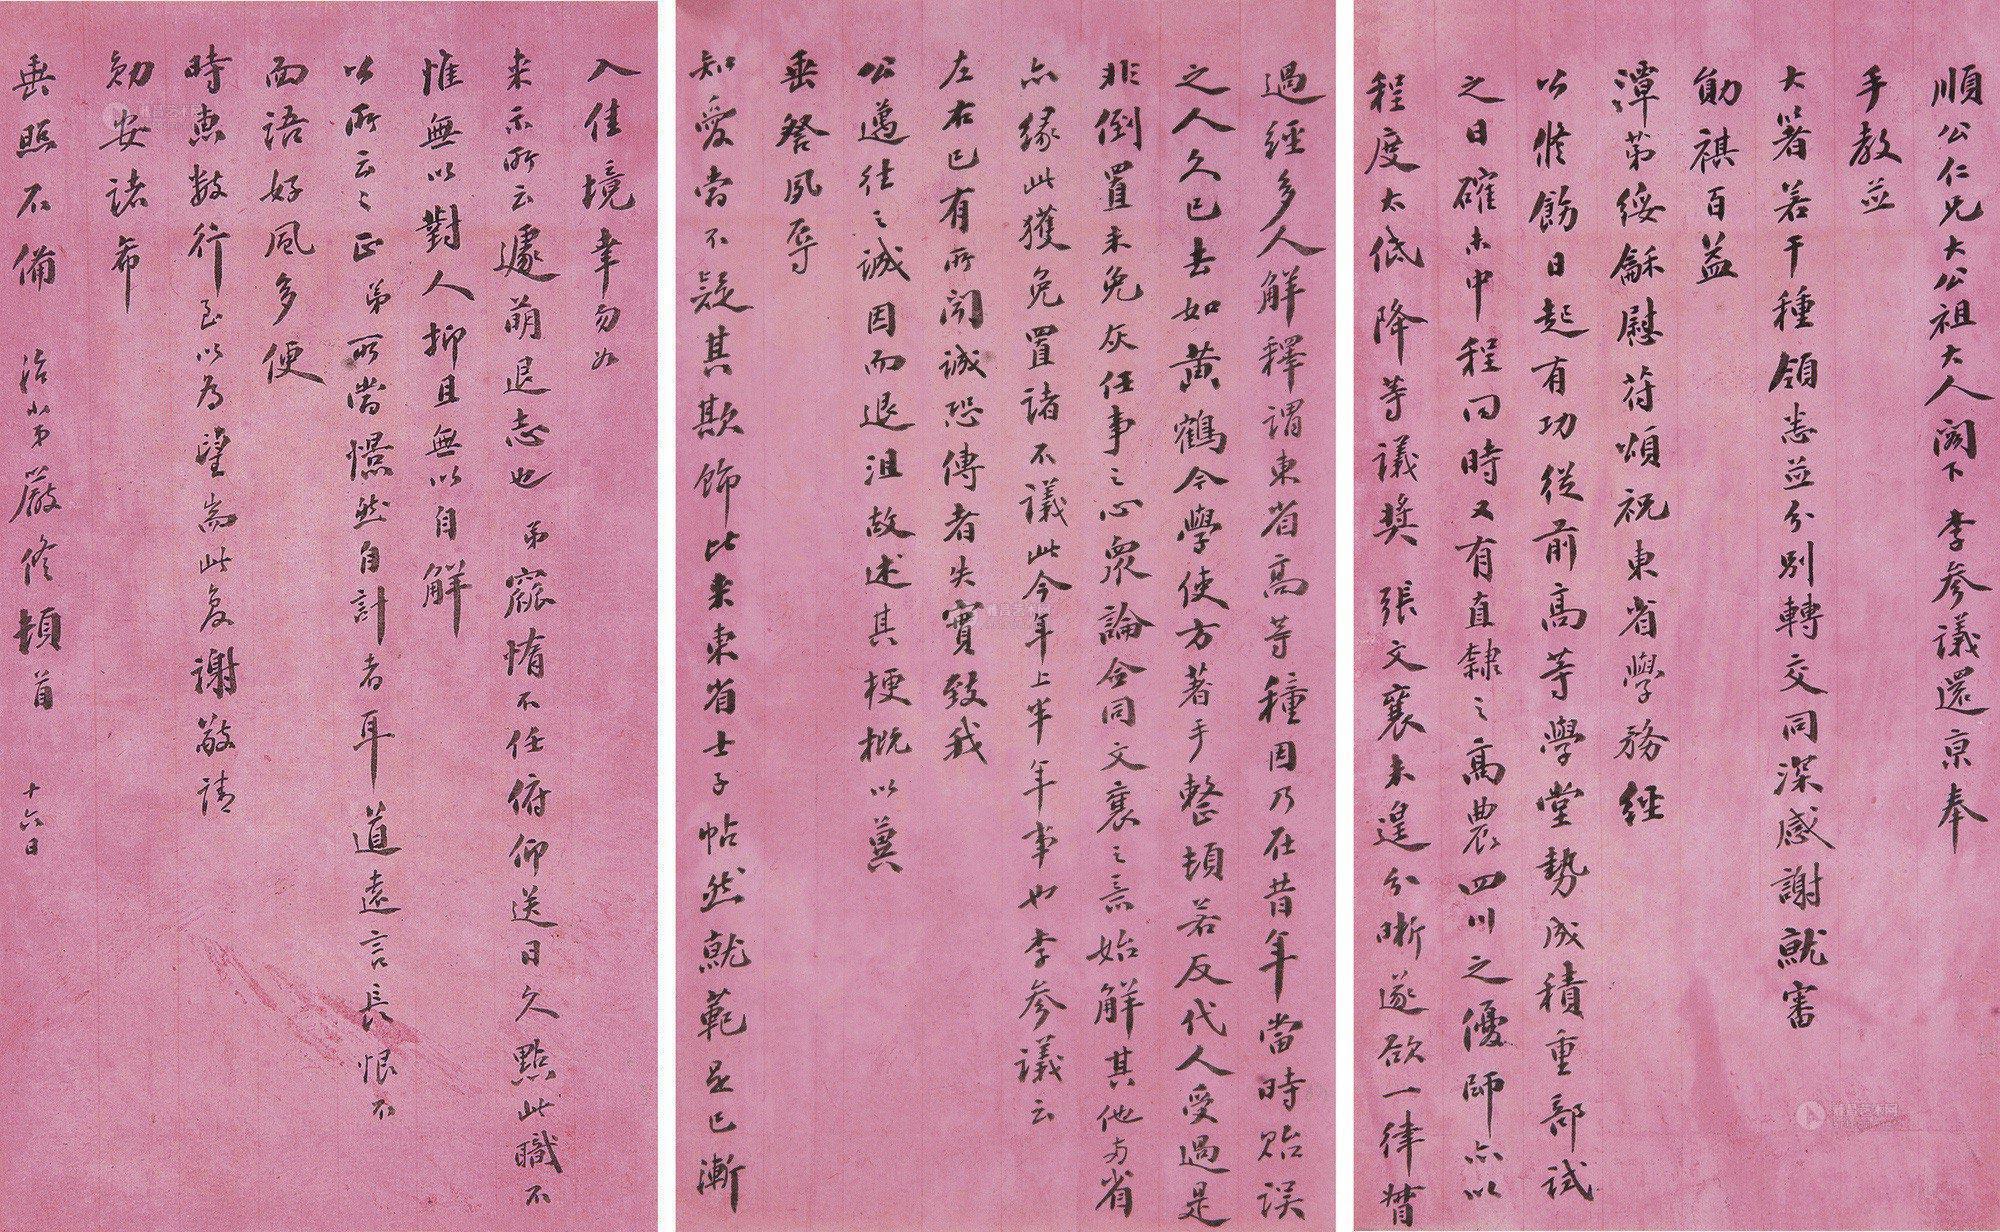 順公仁兄大公祖大人閣下李參議還京奉
手教並
大著若干種領悉並分別轉交同深感謝就審
勛祺百益
潭第綏龢慰符頌祝東省學務經
公脩飭日起有功從前高等學堂勢成積重部試
之日確未中程同時又有直隸之高農四川之優師亦以
程度太低降等議獎張文襄未遑分晰遂欲一律
過經多人解釋謂東省高等種因乃在昔年當時貽誤
之人久已去如黃鶴今學使方著手整頓若反代人受過是
非倒置未免灰任事之心眾論僉同文襄之意始解其他省
亦緣此獲免置諸不議此今年上半年事也李參議云
左右已有所聞誠恐傳者失實致我
公邁往之誠因而退沮故述其梗概以冀
垂詧夙辱
知愛當不疑其欺飾比來東省士子帖然就範足已漸
入佳境幸勿如
來示所云遽萌退志也弟竊惰不任俯仰送日久點此職不
惟無以對人抑且無以自解
以所云云正弟所當憬然自計者耳道遠言長恨不
面語好風多便
時惠數行至以為望耑此复謝敬請
勛安諸希
垂照不備 治小弟嚴修頓首 十六日